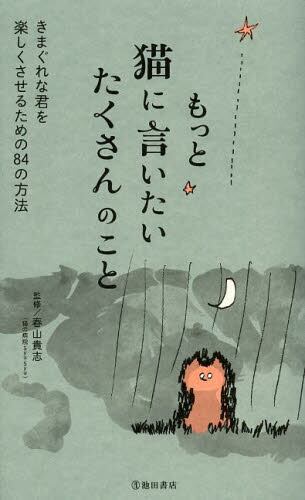 もっと
猫に言いたい
たくさんのこと
きまぐれな君を
楽しくさせるための84の方法
監修/春山貴志
池田書店